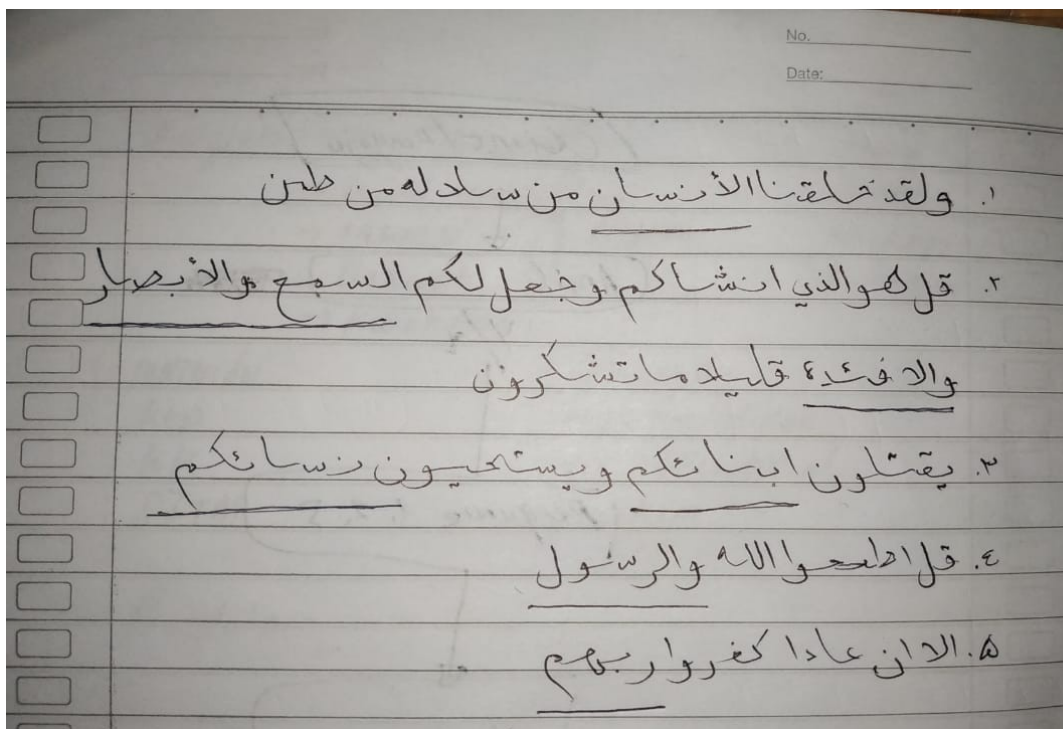 No.
Date:
١. ولقد خلقنا الأنسان من سلاله من طين
٢. قل هو الذي انشاكم وجعل لكم السمع والأبصار
والافئدة قليلا ما تشكرون
٣. يقتلون ابنائكم ويستحيون نسائكم
٤. قل اطيعوا الله والرسول
٥. الا ان عادا كفروا ربهم